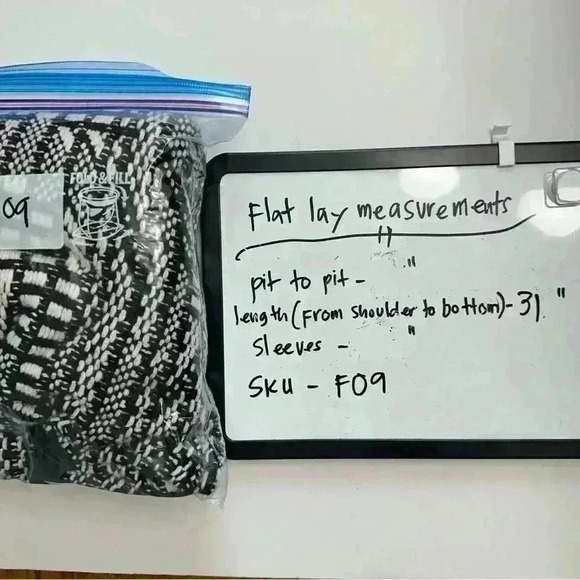 FOLD & FILL
09
Flat lay measurements
"
pit to pit - "
length (from shoulder to bottom) - 31 "
Sleeves - "
SKU - F09